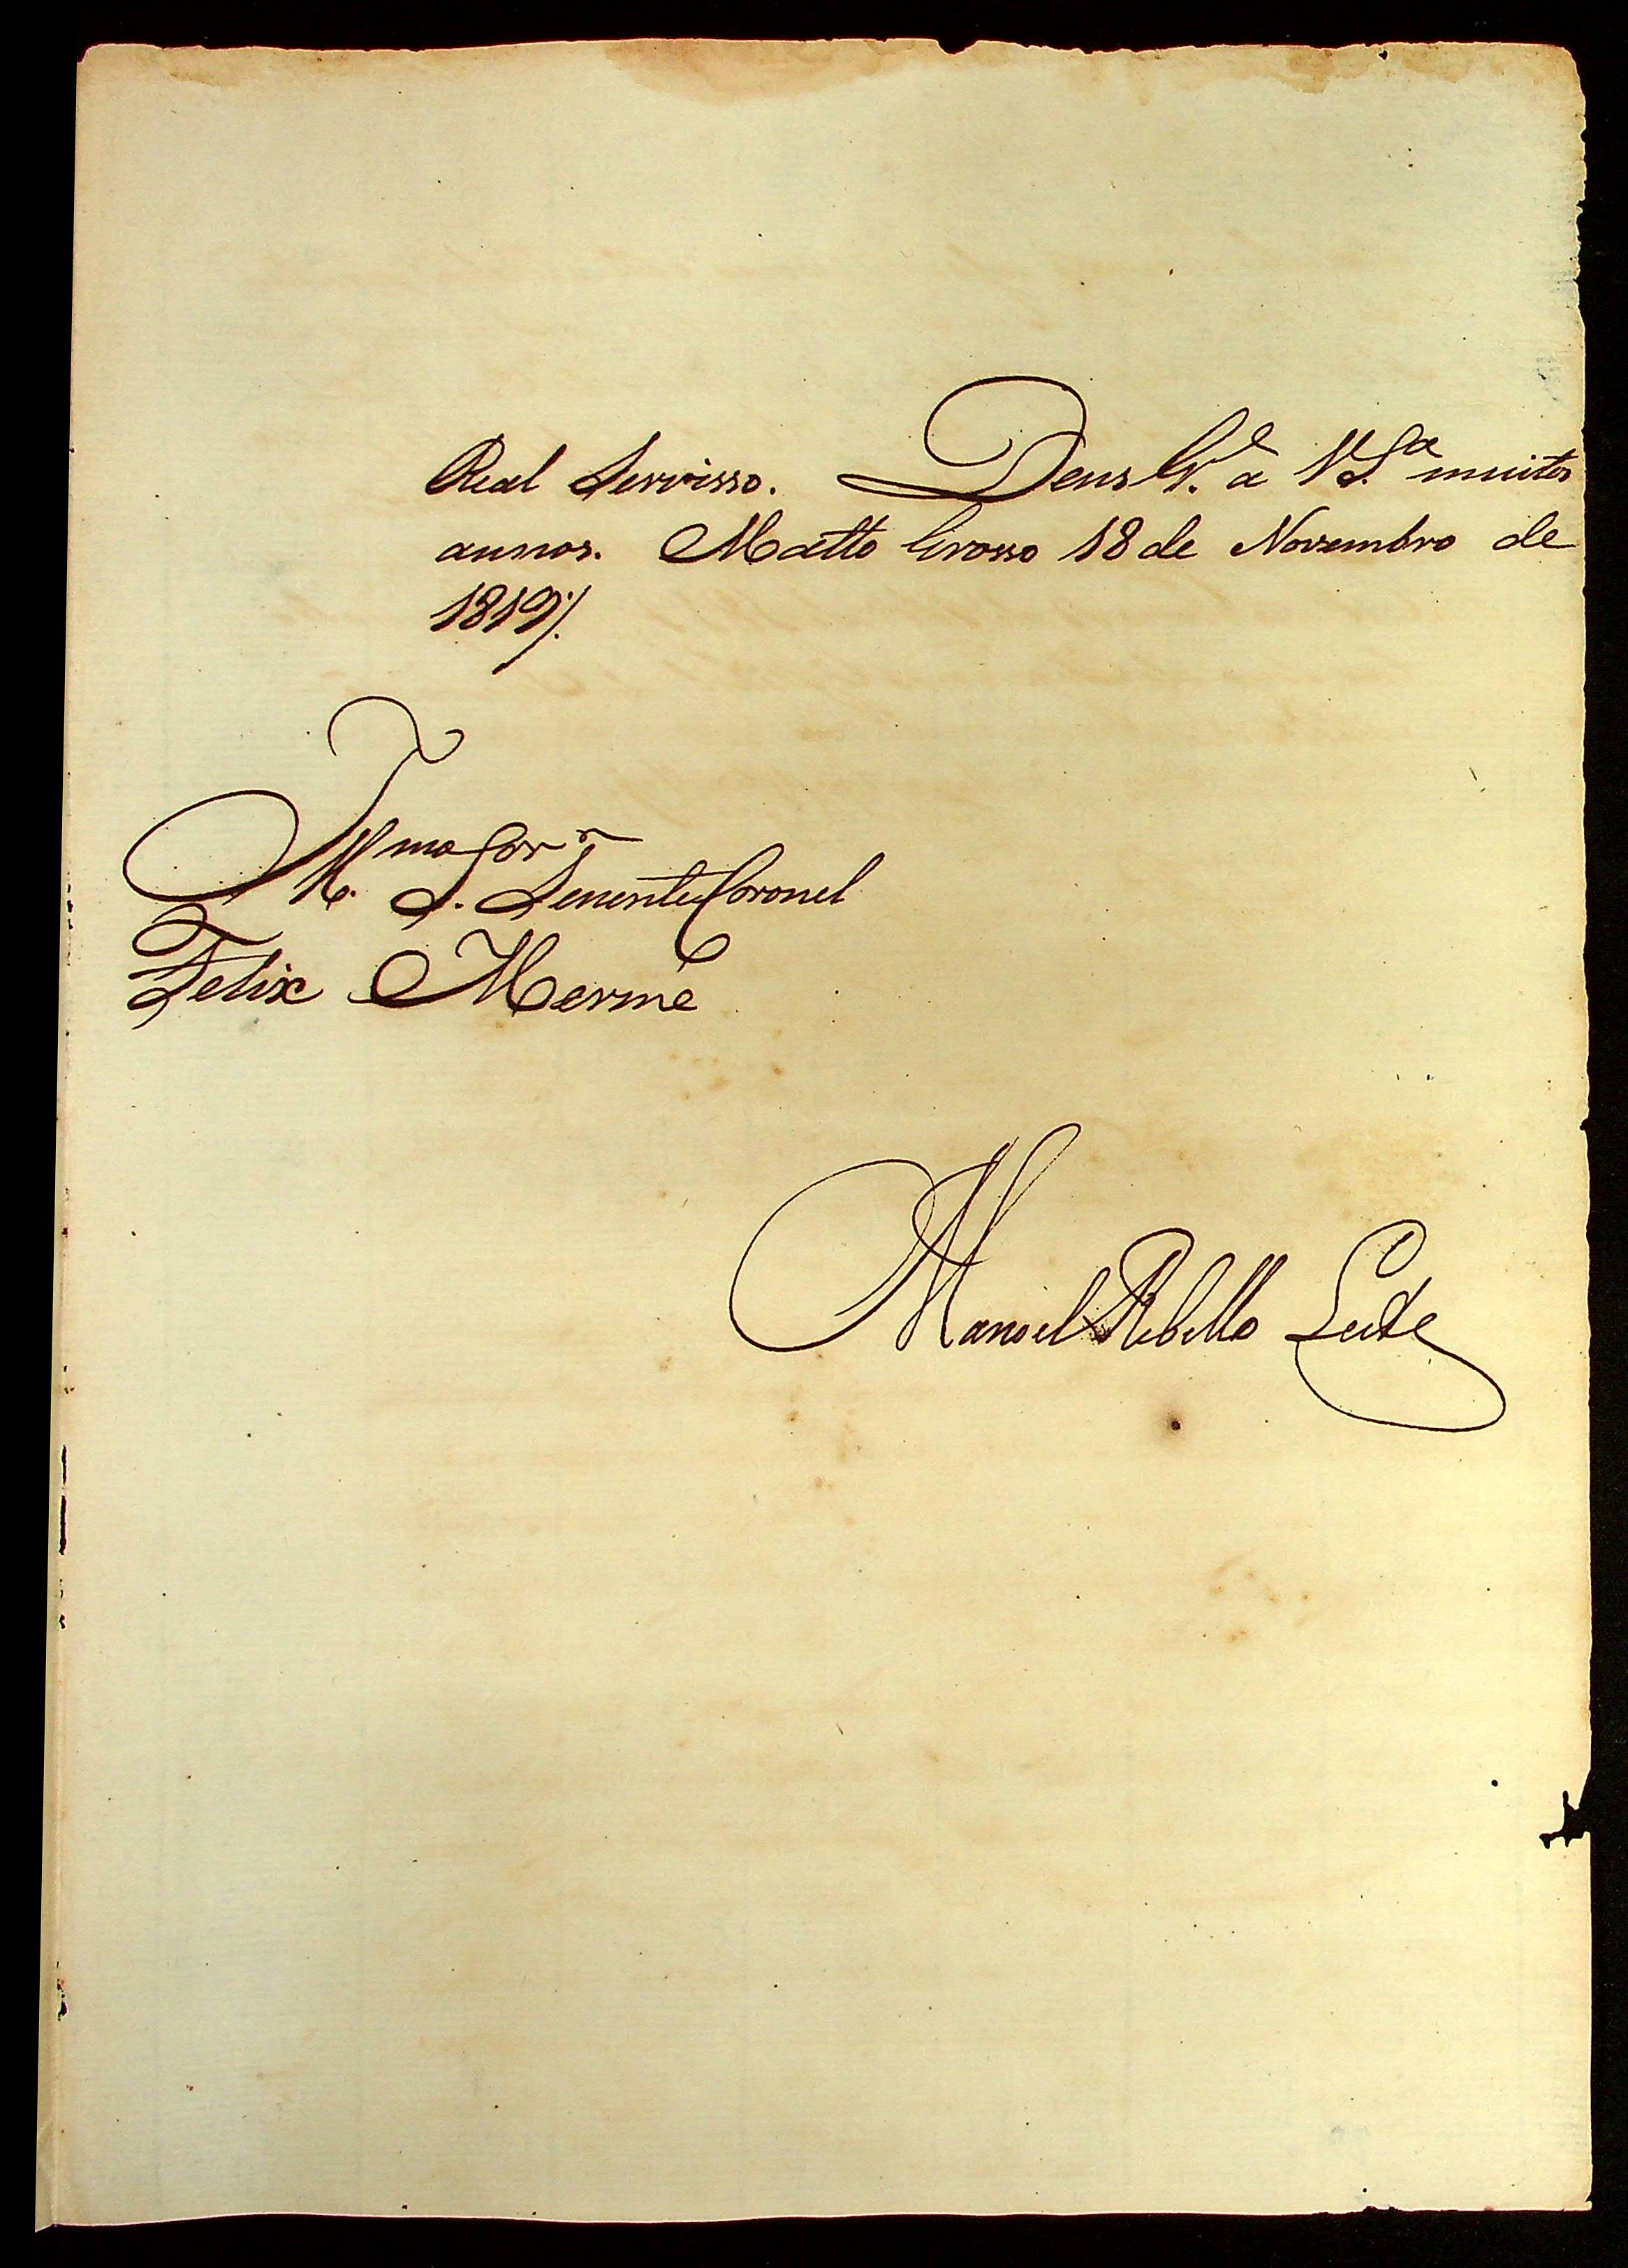 Real Servisso. Deus G.e a V S.a muitos
annos. Matto Grosso 18 de Novembro de
1819./.
Ill.mo Snr. Tenente Coronel
Felix Merme
Manoel Rebello Leite